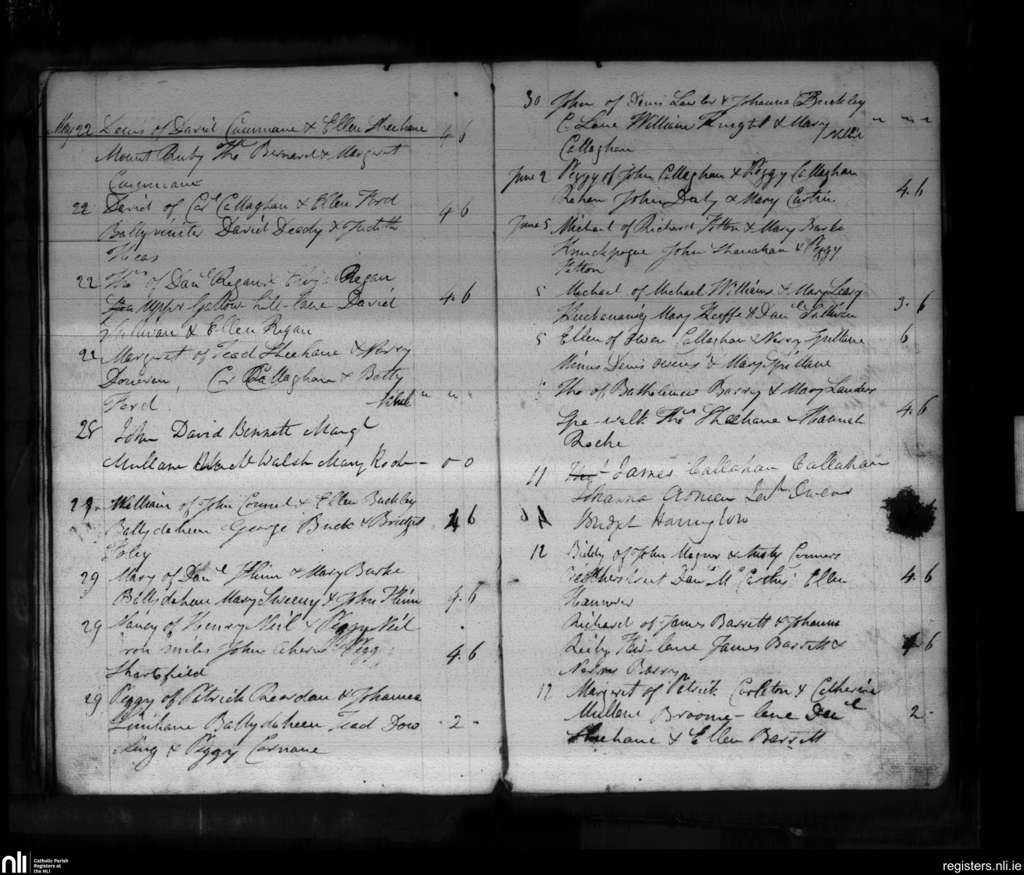 May 22 Lewis of David Cunmane & Ellen Sheehane 4 6
Mount Ruby Thos Bernard & Margaret
22 David of Cor Callaghan & Ellen Ford 4 6
Ballyviniter David Deedy & Judith
22 Thos of Danl Regan & Regan
Upper Gallows hill-lane David 4.6
Sullivan & Ellen Regan
22 Margret of Tead Sheehane & Norry
Donovan, Cr Callaghan & Betty
Ford. nihil " "
28 John David Bennett Margt
Mullane Walsh Mary Roch- 0-0
29 William of John Connel & Ellen Buckley
Ballydaheen George Buck & Bridget 4 6
Foley
29 Mary of Danl Flinn & Mary Burke
Ballydahan Mary Sweeny & John Flinn 4.6
29 Nancy of Henry Neil & Peggy Neil
iron mills John Aherne Pegg 4.6
Shortsfield
29 Peggy of Patrick Reardan & Johanna
Linihane Ballydaheen Tead Dow - 2 -
ling & Peggy
30 John of Denis Lawler & Johanna Buckley
C. Lane William Knight & Mary nihil " - " -
Callaghan
June 2 Peggy of John Callaghan & Peggy Callaghan
Rahan John Daly & Mary Curtin 4.6
June 5 Michael of Richard Fitton & Mary Burke
Knuckpogue John Shanahan & Peggy
Fitton
5 Michael of Michael Williams & Mary Leary
Mary Keeffe & Danl Sullivan 3.6
5 Ellen of Owen Callaghan & Norry Spillane 6
Denis Owens & Mary Spillane
5 Thos of Batholemew Barry & Mary Landers
Spa-walk Thos Sheehane & Hannah 4.6
Roche
11 James Callahan Callahan
Johanna Owens
Bridget Harrington
12 Biddy of John Magner & Connors
Danl McCarthy Ellen 4.6
Richard of James Barrett & Johanna
lane James Barrett & 4 6
Barry
12 Margret of Patrick Carleton & Catherine
Mullane Broome-lane Danl 2 -
Sheehane & Ellen Barrett
nli Catholic Parish
Registers at
the NLI
registers.nli.ie